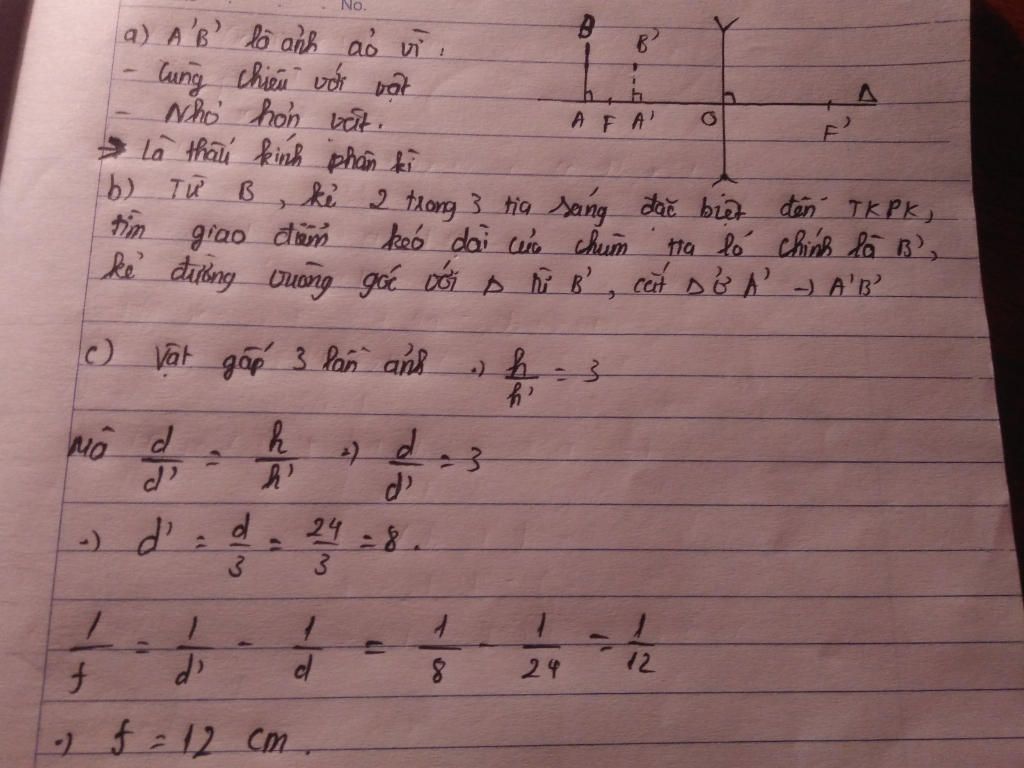 No.
a) A'B' là ảnh ảo vì:
- Cùng chiều với vật
- Nhỏ hơn vật.
=> Là thấu kính phân kì
B B'
A F A' O F' Δ
b) Từ B, kẻ 2 trong 3 tia sáng đặc biệt đến TKPK,
tìm giao điểm kéo dài của chùm tia ló chính là B',
kẻ đường vuông góc với Δ từ B', cắt Δ ở A' → A'B'
c) Vật gấp 3 lần ảnh ⇒ h/h' = 3
Mà d/d' = h/h' ⇒ d/d' = 3
⇒ d' = d/3 = 24/3 = 8.
1/f = 1/d' - 1/d = 1/8 - 1/24 = 1/12
⇒ f = 12 cm.